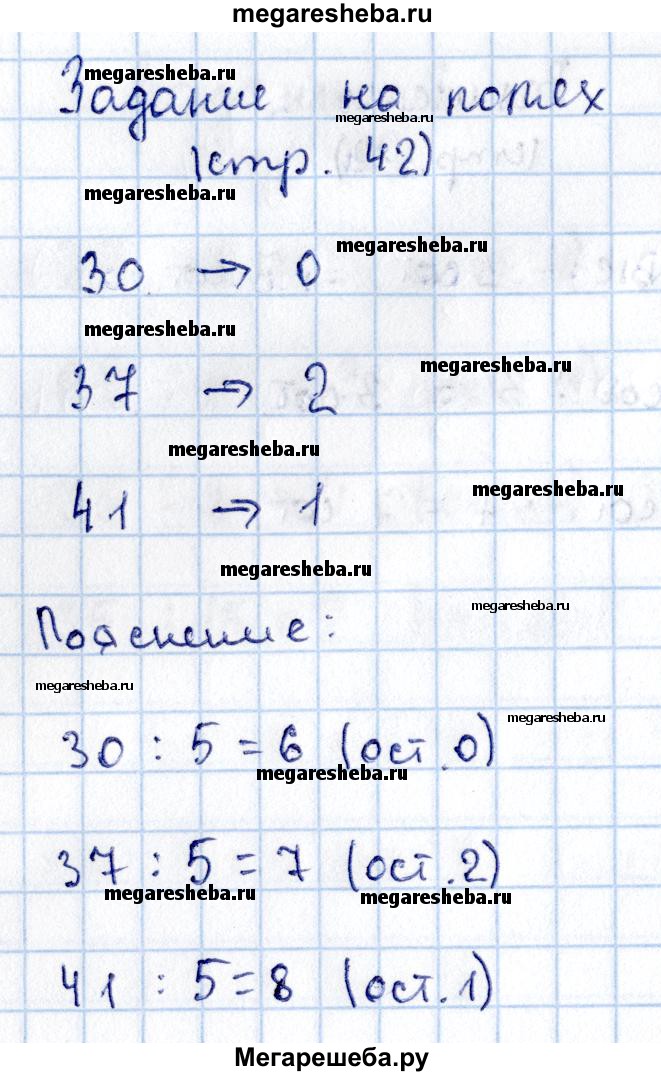 megaresheba.ru
megaresheba.ru
Задание на полях
megaresheba.ru
(стр. 42)
megaresheba.ru
megaresheba.ru
30 → 0
megaresheba.ru
megaresheba.ru
37 → 2
megaresheba.ru
megaresheba.ru
41 → 1
megaresheba.ru
megaresheba.ru
Пояснение:
megaresheba.ru
megaresheba.ru
30 : 5 = 6 (ост. 0)
megaresheba.ru
37 : 5 = 7 (ост. 2)
megaresheba.ru
megaresheba.ru
41 : 5 = 8 (ост. 1)
Мегарешеба.ру